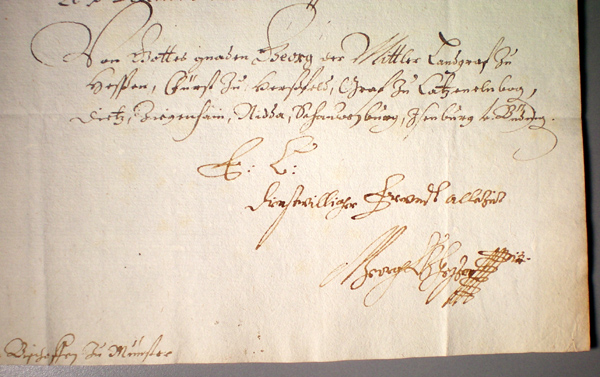 Von Gottes gnaden Georg der Mittler Landgraf zu
Hessen, Fürst zu Hersfeld, Graf zu Catzenelnbog,
Dietz, Ziegenhain, Nidda, Schauenburg, Isenburg v. Büding.
E. L.
dienstwilliger Freundt allezeit
Georg
Bischoffen zu Münster